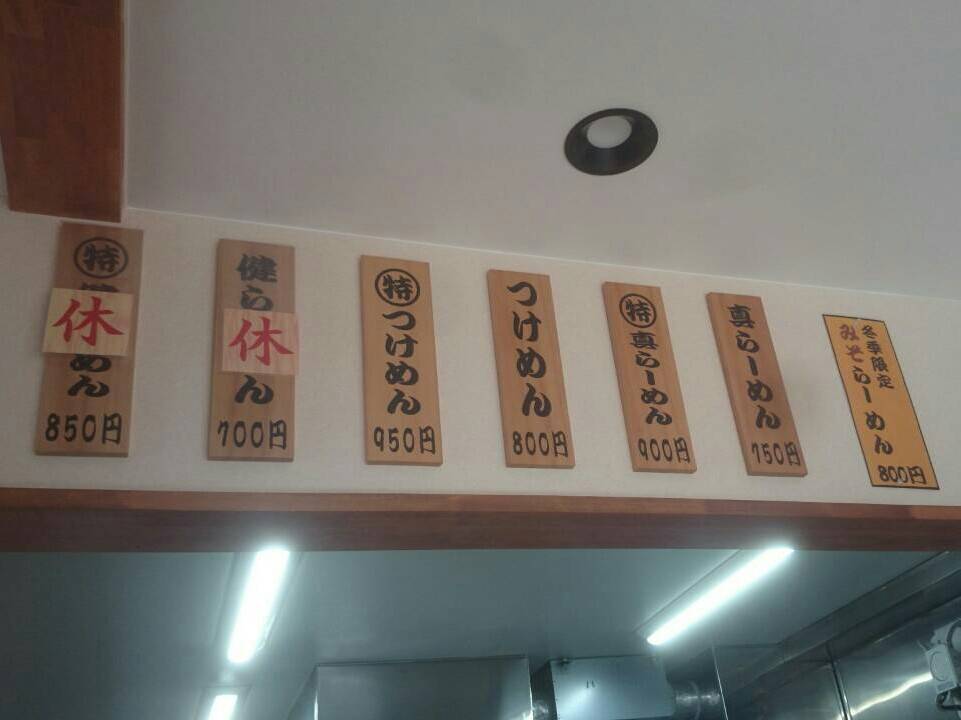 冬季限定
みそらーめん
800円
真らーめん
750円
特
真らーめん
900円
つけめん
800円
特
つけめん
950円
健ら
休
ん
700円
特
休
めん
850円